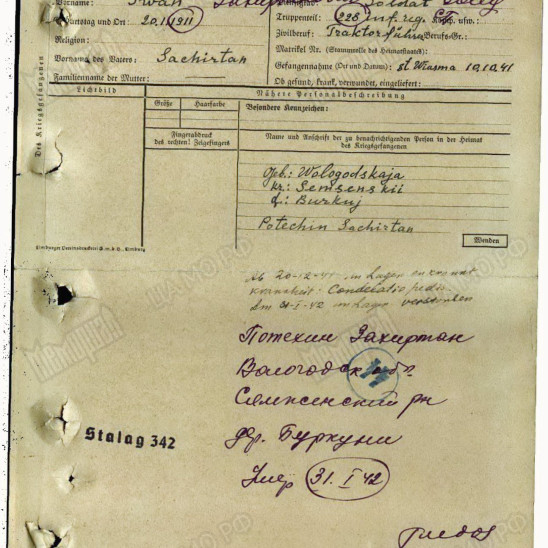 Vorname: Iwan
Dienstgrad: Soldat
Geburtstag und Ort: 20.1.1911
Truppenteil: 226 inf. reg. Komp. usw.:
Religion:
Zivilberuf: Traktorführer Berufs-Gr.:
Vorname des Vaters: Sachirtan
Matrikel Nr. (Stammrolle des Heimatstaates):
Familienname der Mutter:
Gefangennahme (Ort und Datum): st. Wiasma 10.10.41
Ob gesund, krank, verwundet, eingeliefert:
Des Kriegsgefangenen
Lichtbild
Nähere Personalbeschreibung
Größe
Haarfarbe
Besondere Kennzeichen:
Fingerabdruck
des rechten! Zeigefingers
Name und Anschrift der zu benachrichtigenden Person in der Heimat
des Kriegsgefangenen
Geb.: Wologodskaja
Kr.: Semsenskii
d.: Burkuj
Potechin Sachirtan
Wenden
Limburger Vereinsdruckerei G.m.b.H., Limburg
Ab 20-12-41 im Lager erkrankt
Krankheit: Condelatio pedis
Am 31-I-42 im Lager verstorben
Потехин Захиртан
Вологодск обл.
Сямженский рн
Stalag 342
др. Буркуни
Умер 31.I 42